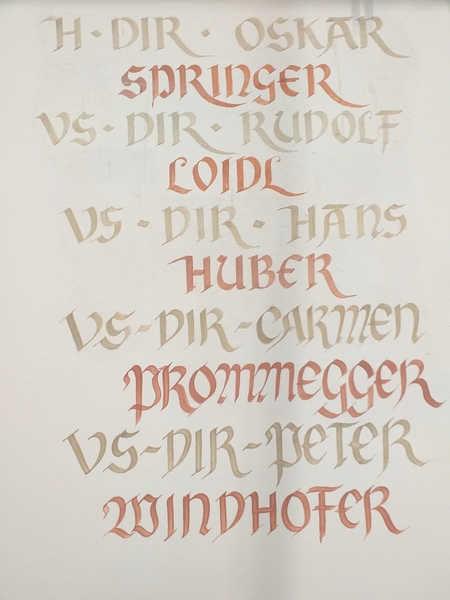 H·DIR· OSKAR
SPRINGER
VS·DIR· RUDOLF
LOIDL
VS·DIR· HANS
HUBER
VS-DIR-CARMEN
PROMMEGGER
VS-DIR-PETER
WINDHOFER